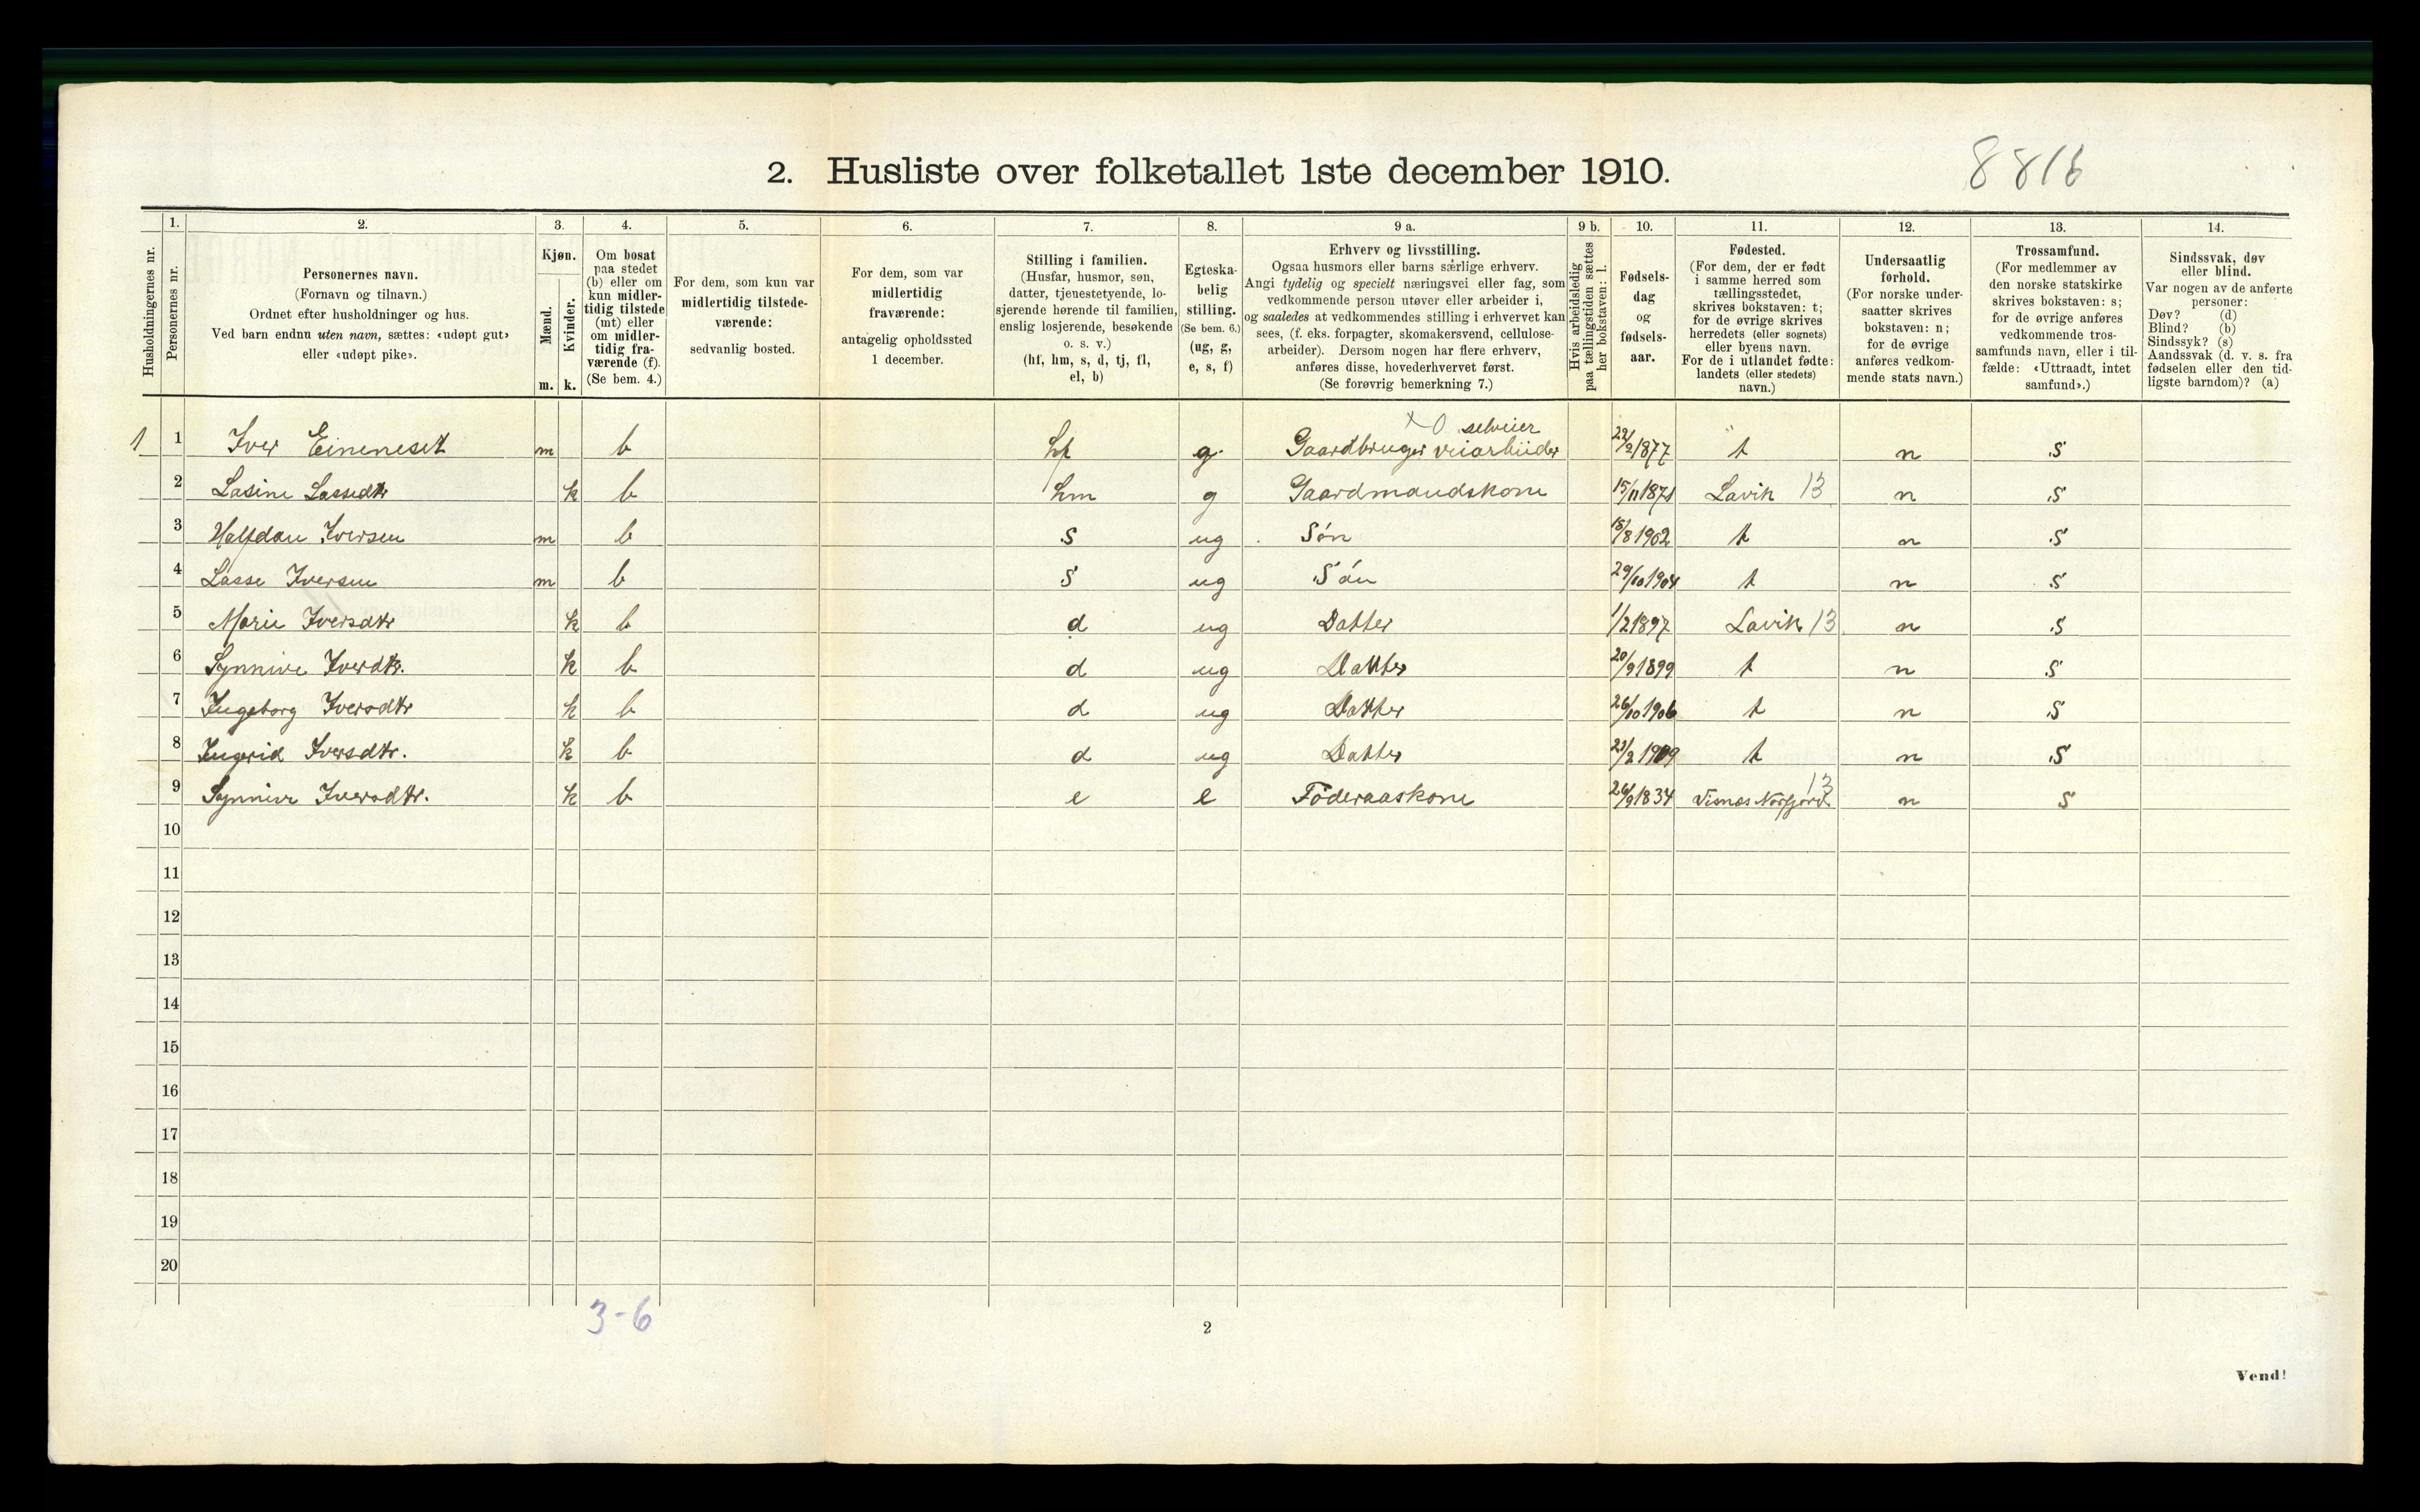 8816
2. Husliste over folketallet 1ste december 1910.
Husholdningernes nr.
1.
Personernes nr.
2.
Personernes navn.
(Fornavn og tilnavn.)
Ordnet efter husholdninger og hus.
Ved barn endnu uten navn, sættes: «udøpt gut»
eller «udøpt pike».
3.
Kjøn.
Mænd.
m.
Kvinder.
k.
4.
Om bosat
paa stedet
(b) eller om
kun midler-
tidig tilstede
(mt) eller
om midler-
tidig fra-
værende (f).
(Se bem. 4.)
5.
For dem, som kun var
midlertidig tilstede-
værende:
sedvanlig bosted.
6.
For dem, som var
midlertidig
fraværende:
antagelig opholdssted
1 december.
7.
Stilling i familien.
(Husfar, husmor, søn,
datter, tjenestetyende, lo-
sjerende hørende til familien,
enslig losjerende, besøkende
o. s. v.)
(hf, hm, s, d, tj, fl,
el, b)
8.
Egteska-
belig
stilling.
(Se bem. 6.)
(ug, g,
e, s, f)
9 a.
Erhverv og livsstilling.
Ogsaa husmors eller barns særlige erhverv.
Angi tydelig og specielt næringsvei eller fag, som
vedkommende person utøver eller arbeider i,
og saaledes at vedkommendes stilling i erhvervet kan
sees, (f. eks. forpagter, skomakersvend, cellulose-
arbeider). Dersom nogen har flere erhverv,
anføres disse, hovederhvervet først.
(Se forøvrig bemerkning 7.)
9 b.
Hvis arbeidsledig
paa tællingstiden sættes
her bokstaven: l.
10.
Fødsels-
dag
og
fødsels-
aar.
11.
Fødested.
(For dem, der er født
i samme herred som
tællingsstedet,
skrives bokstaven: t;
for de øvrige skrives
herredets (eller sognets)
eller byens navn.
For de i utlandet fødte:
landets (eller stedets)
navn.)
12.
Undersaatlig
forhold.
(For norske under-
saatter skrives
bokstaven: n;
for de øvrige
anføres vedkom-
mende stats navn.)
13.
Trossamfund.
(For medlemmer av
den norske statskirke
skrives bokstaven: s;
for de øvrige anføres
vedkommende tros-
samfunds navn, eller i til-
fælde: «Uttraadt, intet
samfund».)
14.
Sindssvak, døv
eller blind.
Var nogen av de anførte
personer:
Døv? (d)
Blind? (b)
Sindssyk? (s)
Aandssvak (d. v. s. fra
fødselen eller den tid-
ligste barndom)? (a)
x 0 selveier
1 1 Iver Eineneset m b hf g Gaardbruger veiarbeider 22/2 1877 t n s
2 Lasine Lassedtr k b hm g Gaardmandskone 15/11 1871 Lavik 13 n s
3 Halfdan Iversen m b s ug Søn 15/8 1902 t n s
4 Lasse Iversen m b s ug Søn 29/10 1904 t n s
5 Marie Iversdtr k b d ug Datter 1/2 1897 Lavik 13 n s
6 Synnive Iverdtr. k b d ug Datter 20/9 1899 t n s
7 Ingeborg Iversdtr k b d ug Datter 26/10 1906 t n s
8 Ingrid Iversdtr. k b d ug Datter 23/2 1909 t n s
9 Synnive Iversdtr. k b e e Föderaaskone 26/9 1834 Visnes Norfjord 13 n s
10
11
12
13
14
15
16
17
18
19
20
3-6
2
Vend!